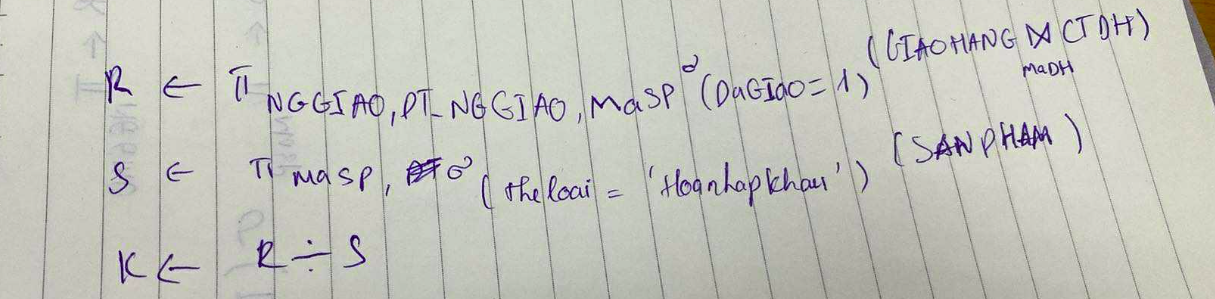 R ← π NGGIAO, DT_NGGIAO, MaSP σ (DaGIao = 1) (GIAOHANG ⋈ CTDH)
MaDH
S ← π MaSP, σ (theloai = 'Hoanhapkhau') (SANPHAM)
K ← R ÷ S